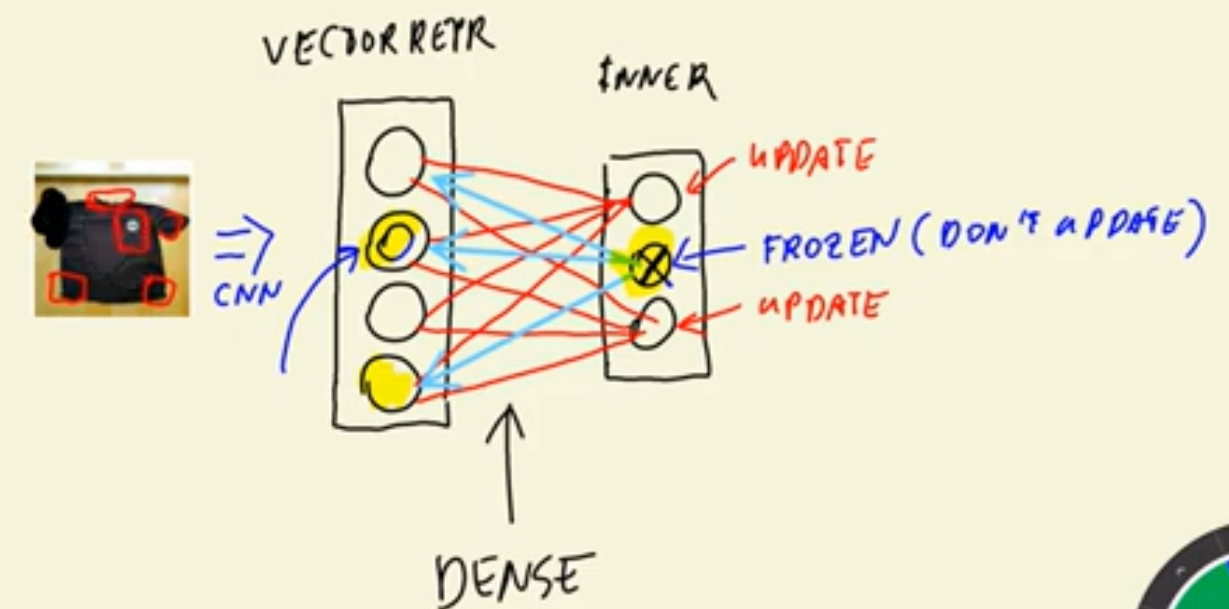 VECTOR REPR
INNER
UPDATE
FROZEN (DON'T UPDATE)
CNN
UPDATE
DENSE